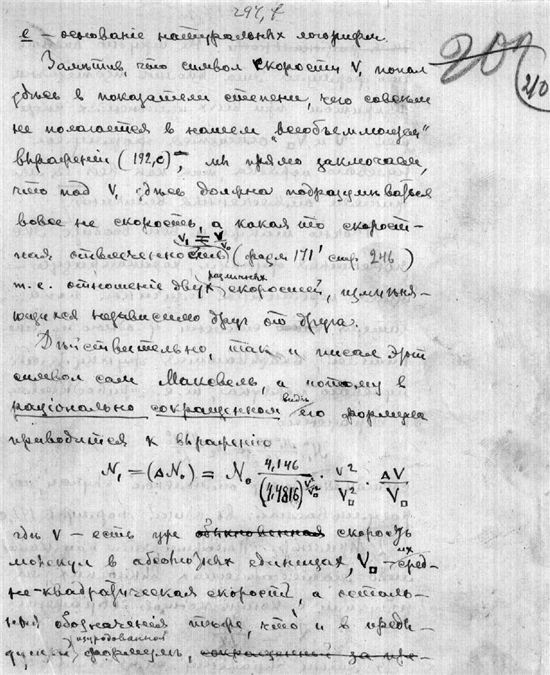 294, f
202
210
e – основаніе натуральных логорифм.
Заметив, что символ скорости V₁ попал
здѣсь в показатели степени, чего совсем
не полагается в нашем „всеобъемлющем"
выражении (192,c), мы прямо заключаем,
что под V₁ здѣсь должна подразумеваться
вовсе не скорость, а какая то скорост-
V₁ = V/V₀
ная отвлеченность (форм 171' стр. 246)
т.е. отношение двух различных скоростей, изменя-
ющихся независимо друг от друга.
Дѣйствительно, так и писал этот
символ сам Максвель, а потому в
рационально сокращенном виде его формула
приводится к выражению
N₁ = (ΔN₀) = N₀ 4,146/(4,4816)^(V²/V²□) · V²/V²□ · ΔV/V□
гдѣ V – есть уже обыкновенная скорость
молекул в абсолютных единицах, V□ – их сред-
не-квадратическая скорость, а осталь-
ныя обозначения тѣже, что и в преды-
дущей изуродованной формулѣ,